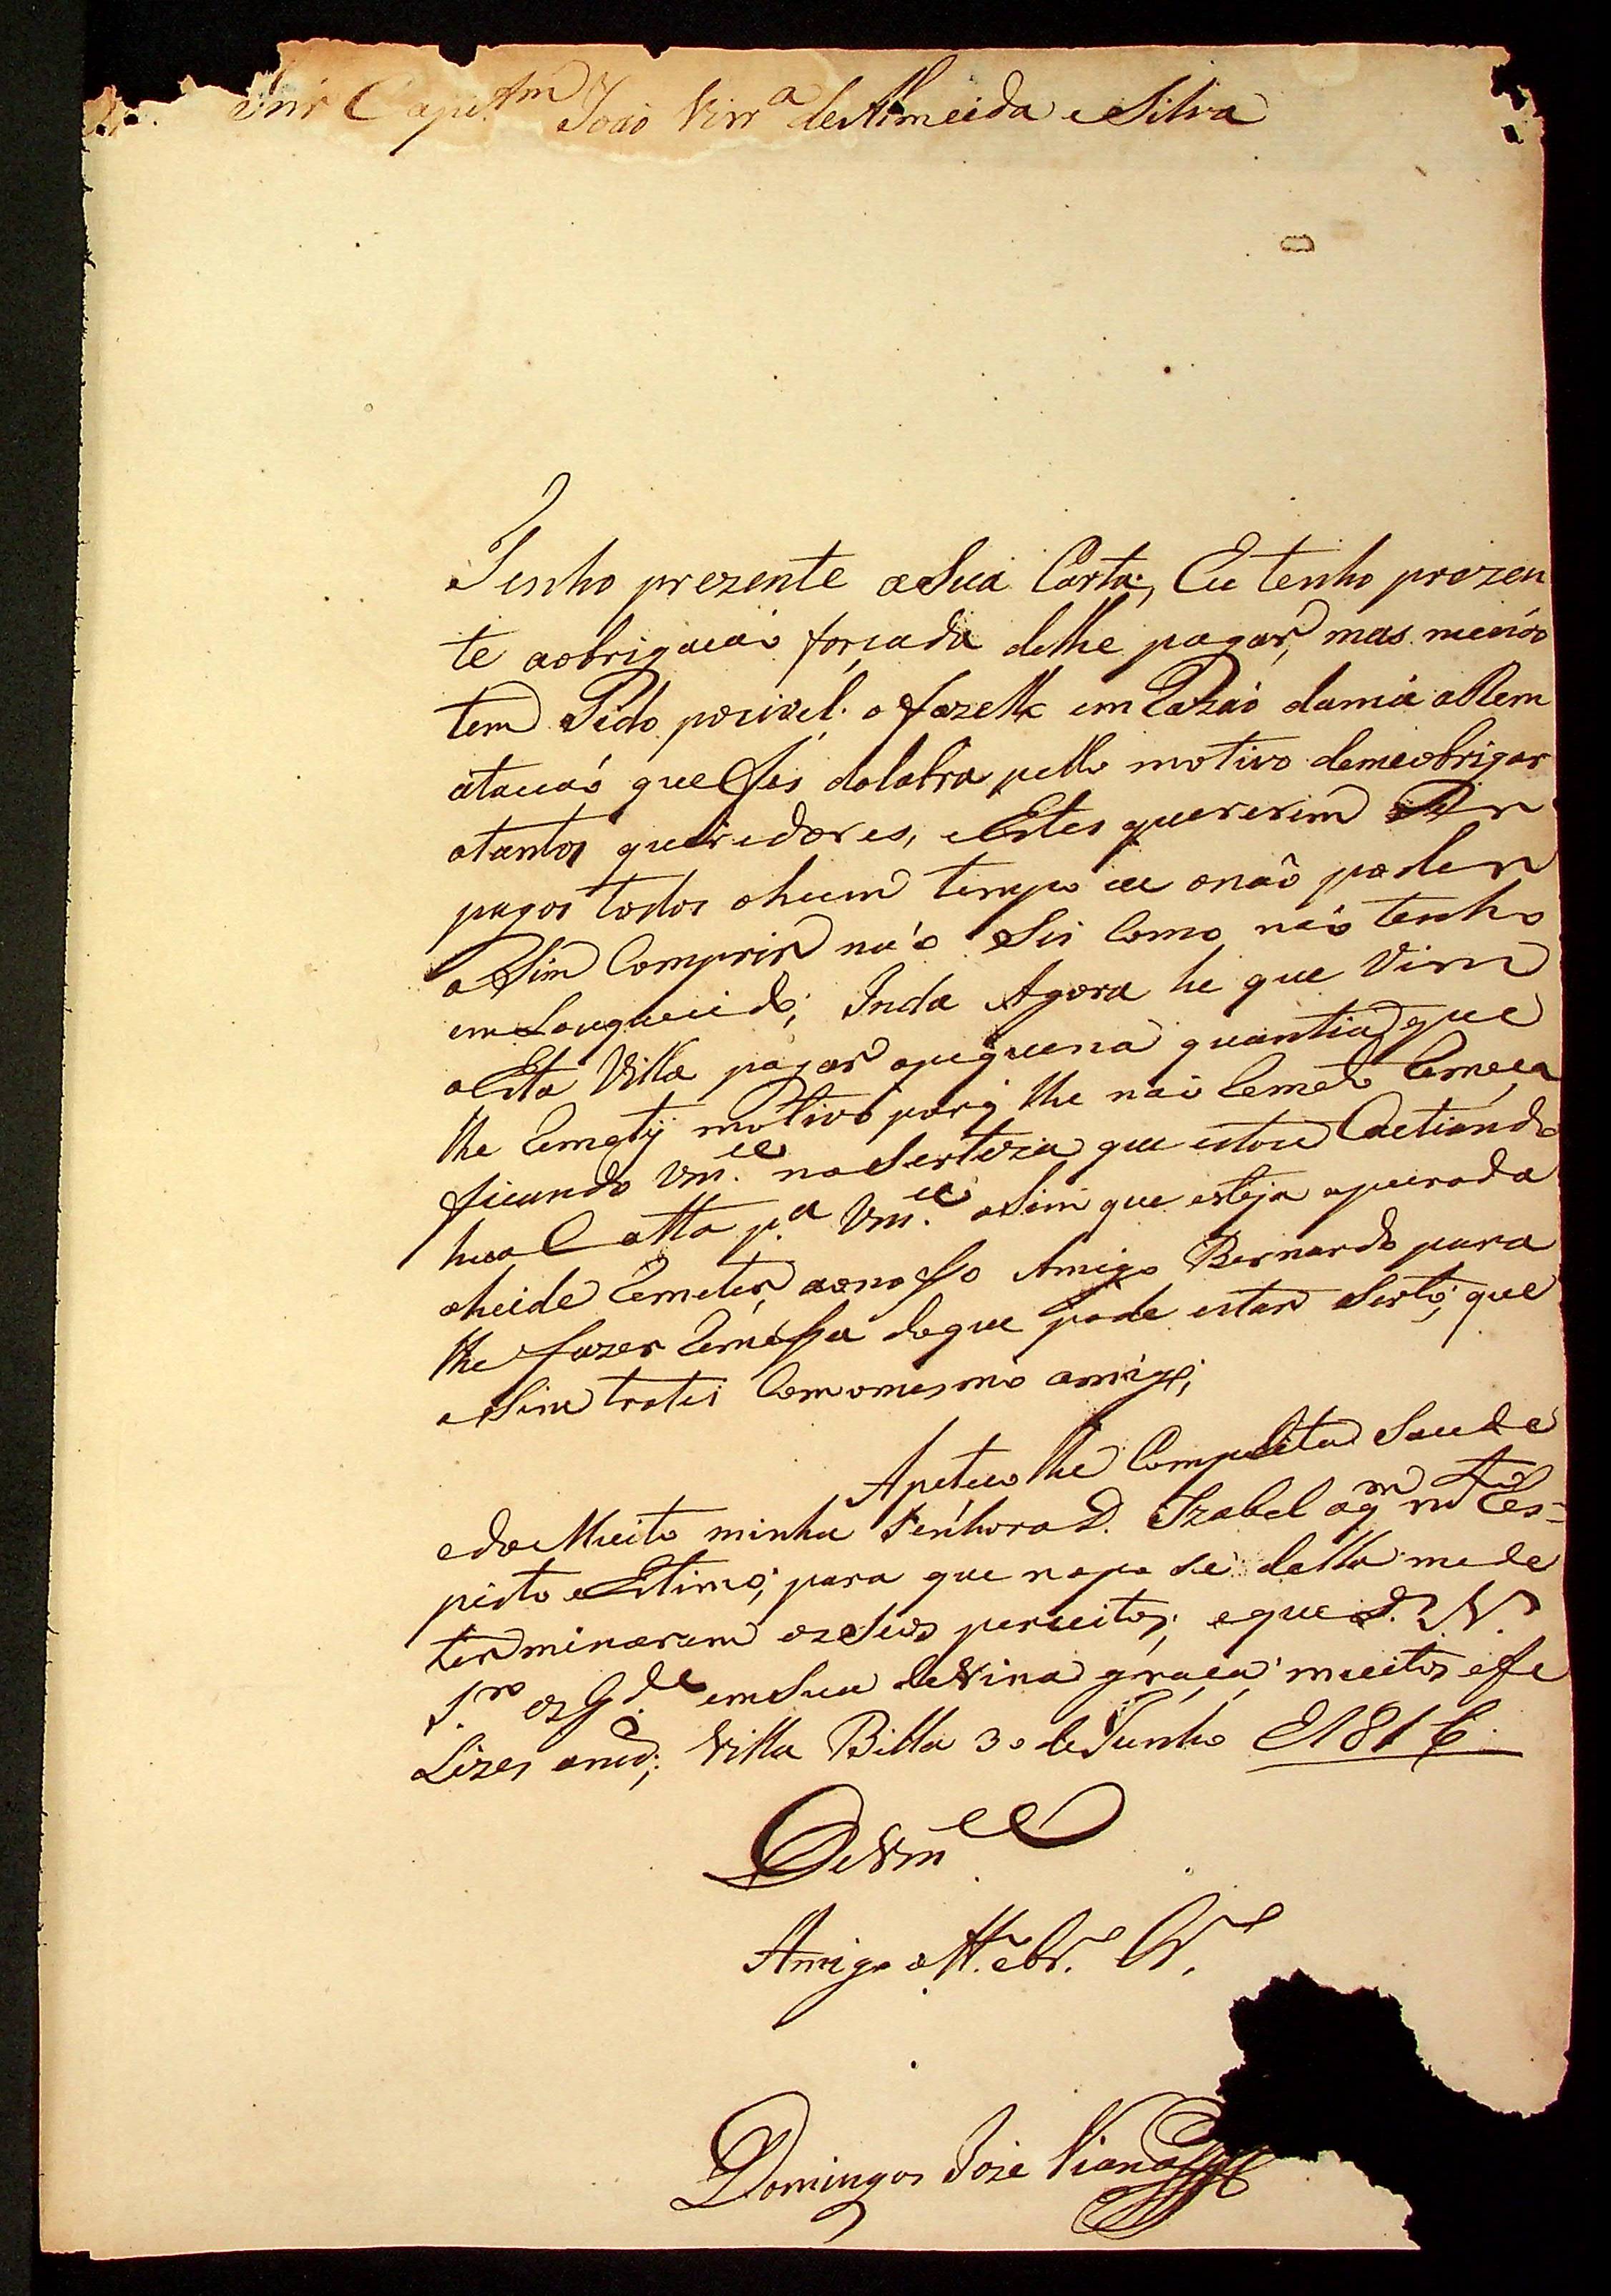 Snr Capit.am João Vir.a de Almeida e Silva
Tenho prezente a Sua Carta, Eu tenho prezen
te a obrigacáo forçada delhe pagar, mas menáo
tem Sido pocivel o fazello em Razáo da má a Rem
atacaó que fis da labra pello motivo deme obrigar
a tantos queredores, e Estes quererem Ser
pagos todos a hum tempo e eu o não poder
a Sim Comprir náo Sei Como náo tenho
em Louquecido; Inda Agora he que Vim
a Esta Villa pagar a piquena quantia que
lhe Remety motivo porq lhe naó Remeto Remeça
ficando Vm.ce na Serteza que estou Catiando
hua Catta p.a Vm.ce a Sim que esteja apurada
a heide Remeter, ao nosso Amigo Bernardo para
lhe fazer Remessa do que pode estar Serto, que
a Sim tratei Com o mesmo amigo;
Apeteco lhe Completa Saude
e da Muito minha Senhora D. Izabel a q.m m.to Res=
peito e Estimo; para que na po se della me de
terminarem os Seus perceitos; e que D. N.
S.r os G.de em Sua devina graça muitos e fe
Lizes anos; Villa Bella 30 de Junho E 1816
De Vm.ce
Amigo Att.o e Obr.o Cr.e
Domingos Joze Viana